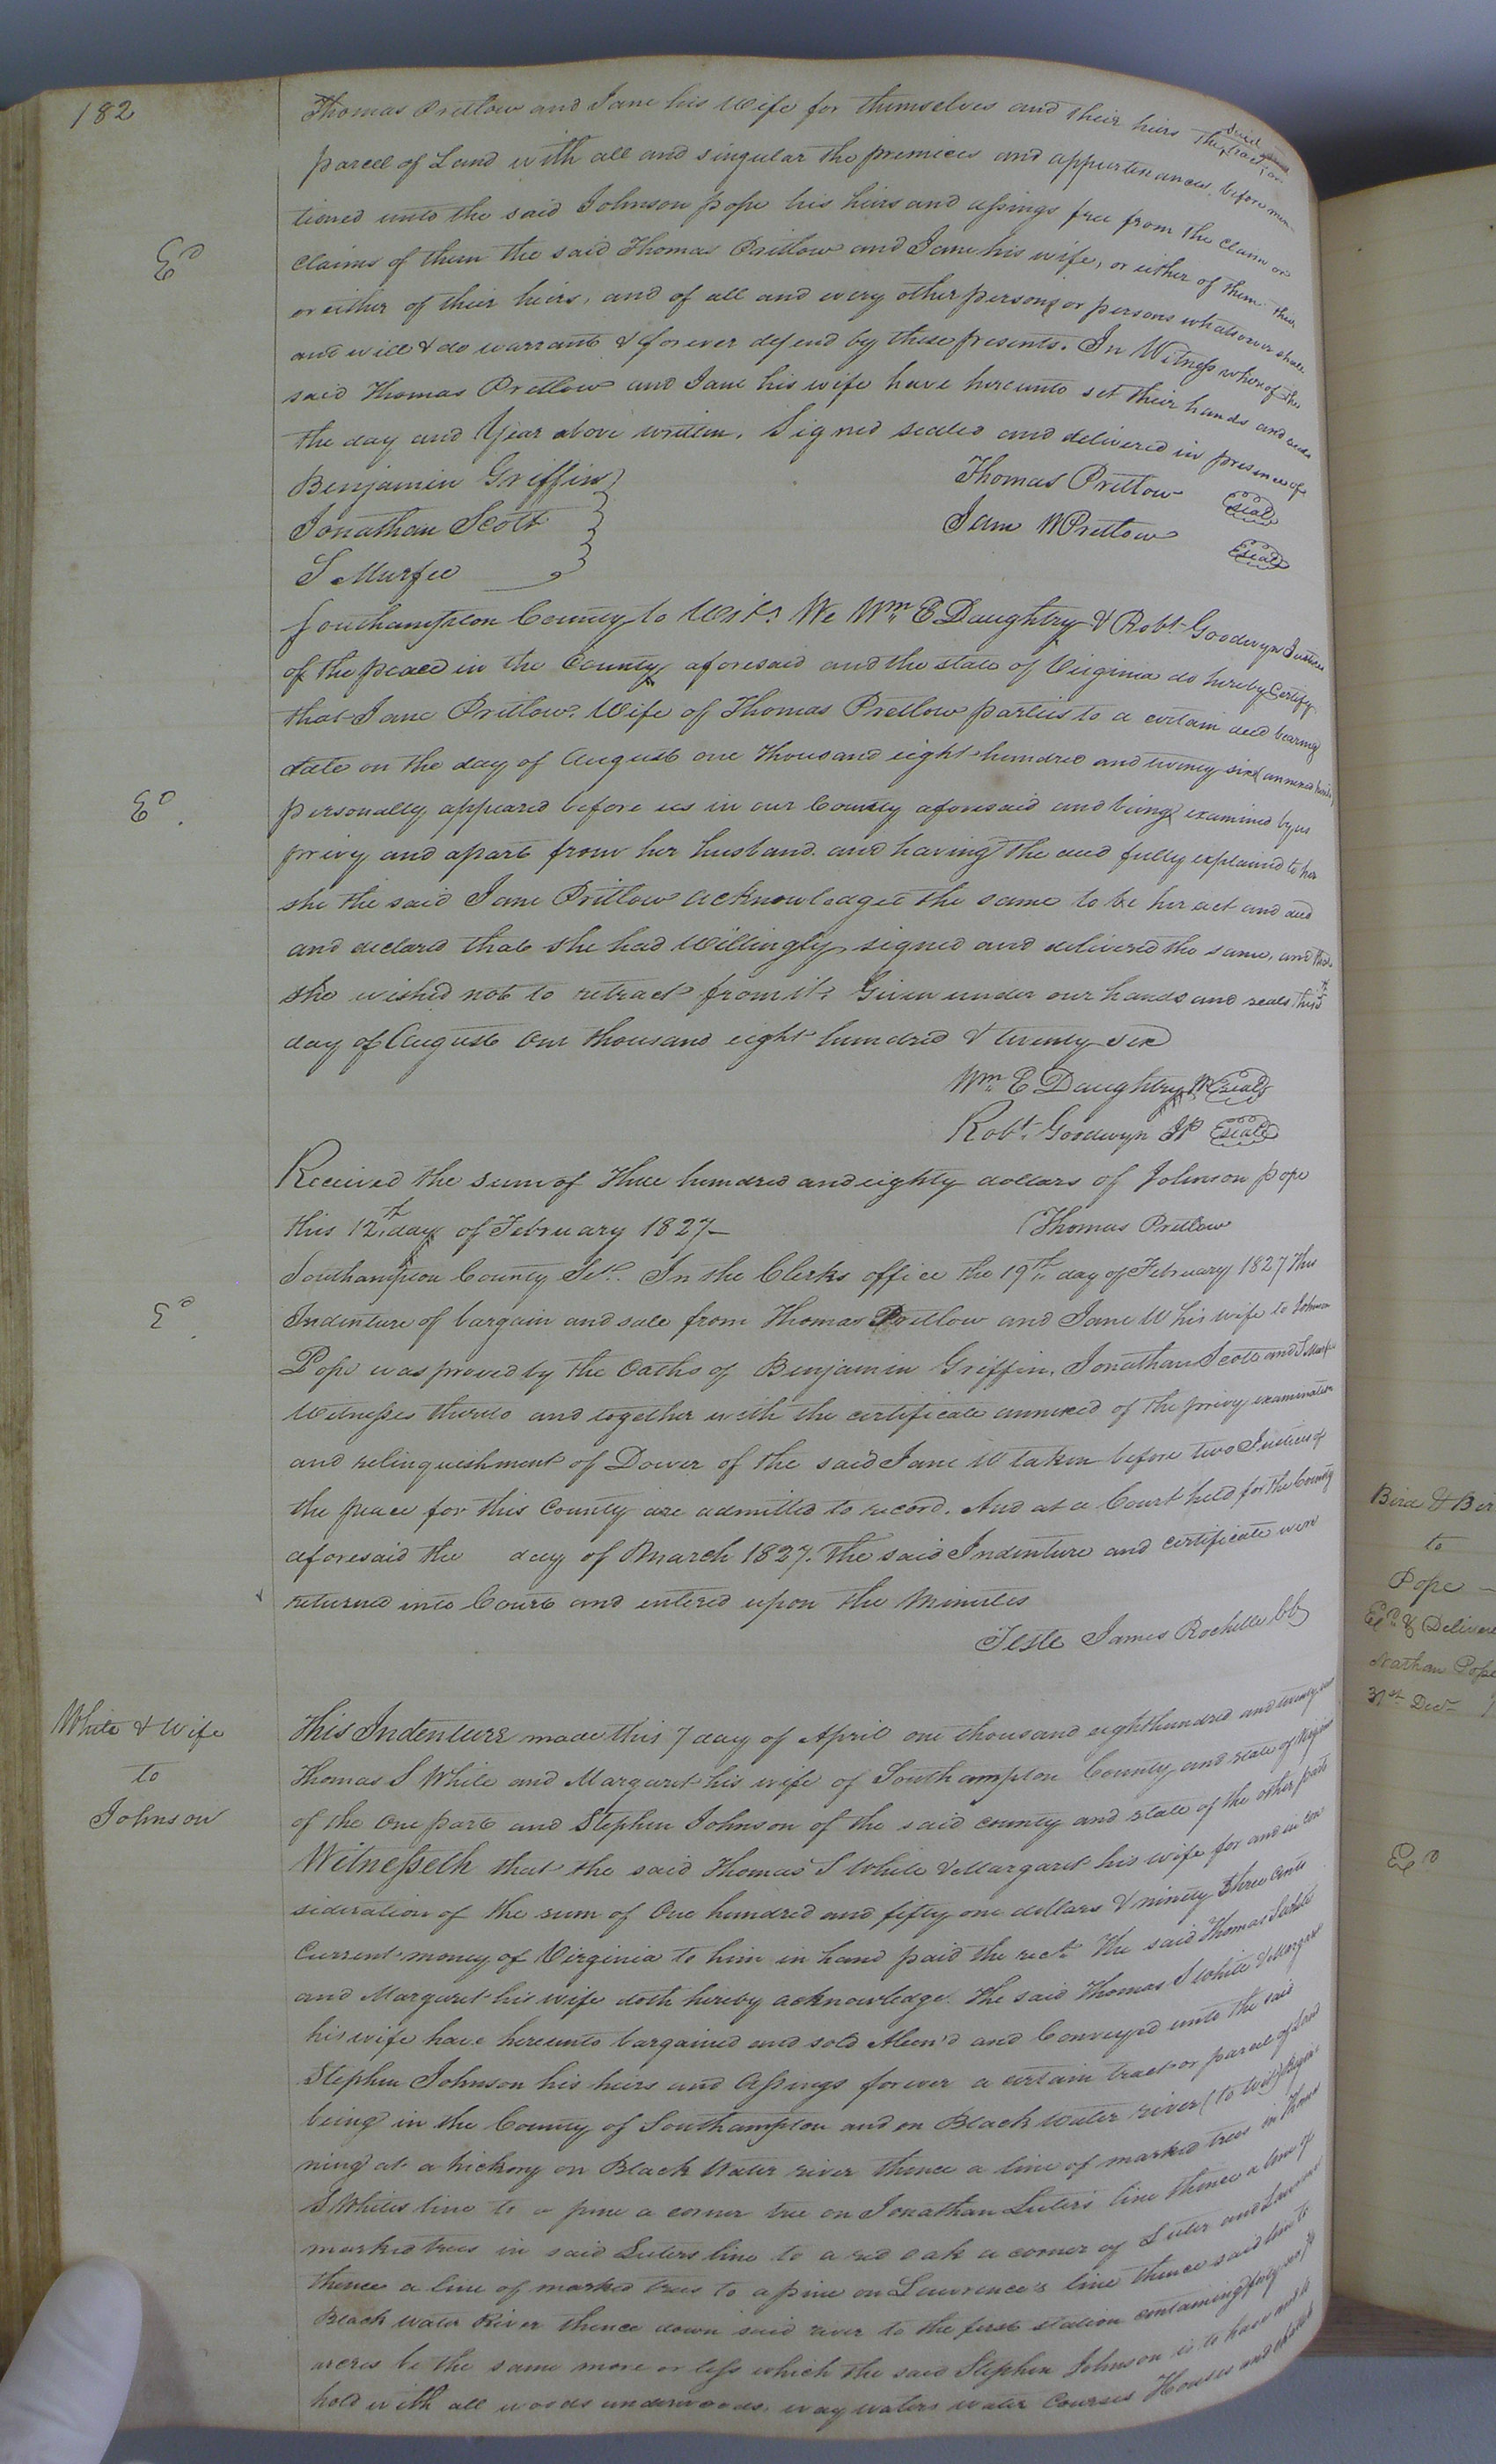 182
Thomas Pretlow and Jane his Wife for themselves and their heirs the said tract or
parcell of Land with all and singular the premices and appurtenances before men-
tioned unto the said Johnson pope his heirs and assings free from the claim or
Ed
claims of them the said Thomas Pretlow and Jane his wife, or either of them their
or either of their heirs, and of all and every other persons or persons whatsoever shall
and will & do warrant & forever defend by these presents. In Witness whereof the
said Thomas Pretlow and Jane his wife have hereunto set their hands and seals
the day and Year above written. Signed sealed and delivered in presence of
Benjamin Griffin
Thomas Pretlow seal
Jonathan Scott
Jane W Pretlow seal
S Murfee
Southampton County to Wit. We Wm E Daughtry & Robt Goodwyn Justices
of the peace in the County aforesaid and the state of Virginia do hereby Certify
that Jane Pretlow Wife of Thomas Pretlow parties to a certain deed bearing
date on the day of August one thousand eight hundred and twenty six annexed
Ed.
personally appeared before us in our County aforesaid and being examined by us
privy and apart from her husband and having the deed fully explained to her
she the said Jane Pretlow acknowledged the same to be her act and deed
and declared that she had Willingly signed and delivered the same, and that
she wished not to retract from it. Given under our hands and seals this
day of August One thousand eight hundred & twenty six
Wm E Daughtry seal
Robt. Goodwyn JP seal
Received the sum of three hundred and eighty dollars of Johnson pope
this 12th day of February 1827—
Thomas Pretlow
Southampton County Sct. In the Clerks office the 19th day of February 1827 This
Ed.
Indenture of bargain and sale from Thomas Pretlow and Jane W his wife to Johnson
Pope was proved by the Oaths of Benjamin Griffin, Jonathan Scott and S Murfee
Witnesses thereto and together with the certificate annexed of the privy examination
and relinqueshment of Dower of the said Jane W taken before two Justices of
the peace for this County are admitted to record. And at a Court held for the County
aforesaid the day of March 1827. The said Indenture and certificate were
returned into Court and entered upon the Minutes
Teste James Rochelle CC
White & Wife
to
Johnson
This Indenture made this 7 day of April one thousand eight hundred and twenty
Thomas S White and Margaret his wife of Southampton County and state of Virginia
of the One part and Stephen Johnson of the said county and state of the other part
Witnesseth that the said Thomas S White & Margaret his wife for and in con
sideration of the sum of One hundred and fifty one dollars & ninety three cents
Current money of Virginia to him in hand paid the rect the said Thomas S White
and Margaret his wife doth hereby acknowledge. The said Thomas S White & Margaret
his wife have hereunto bargained and sold Alien'd and Conveyed unto the said
Stephen Johnson his heirs and Assings forever a certain tract or parcel of Land
being in the County of Southampton and on Black water river (to wit) Begin
ning at a hickory on Black Water river thence a line of marked trees in Thomas
S Whites line to a pine a corner tree on Jonathan Luter's line thence a line of
marked trees in said Luters line to a red oak a corner of Luter and Lawrence
thence a line of marked trees to a pine on Lawrence's line thence said line to
Black water River thence down said river to the first station containing
acres be the same more or less which the said Stephen Johnson is to have and to
hold with all woods underwoods, way waters water Courses Houses and
Bird &
to
Pope —
Exd. & Delivered
Nathan Pope
31st Decr
Exd